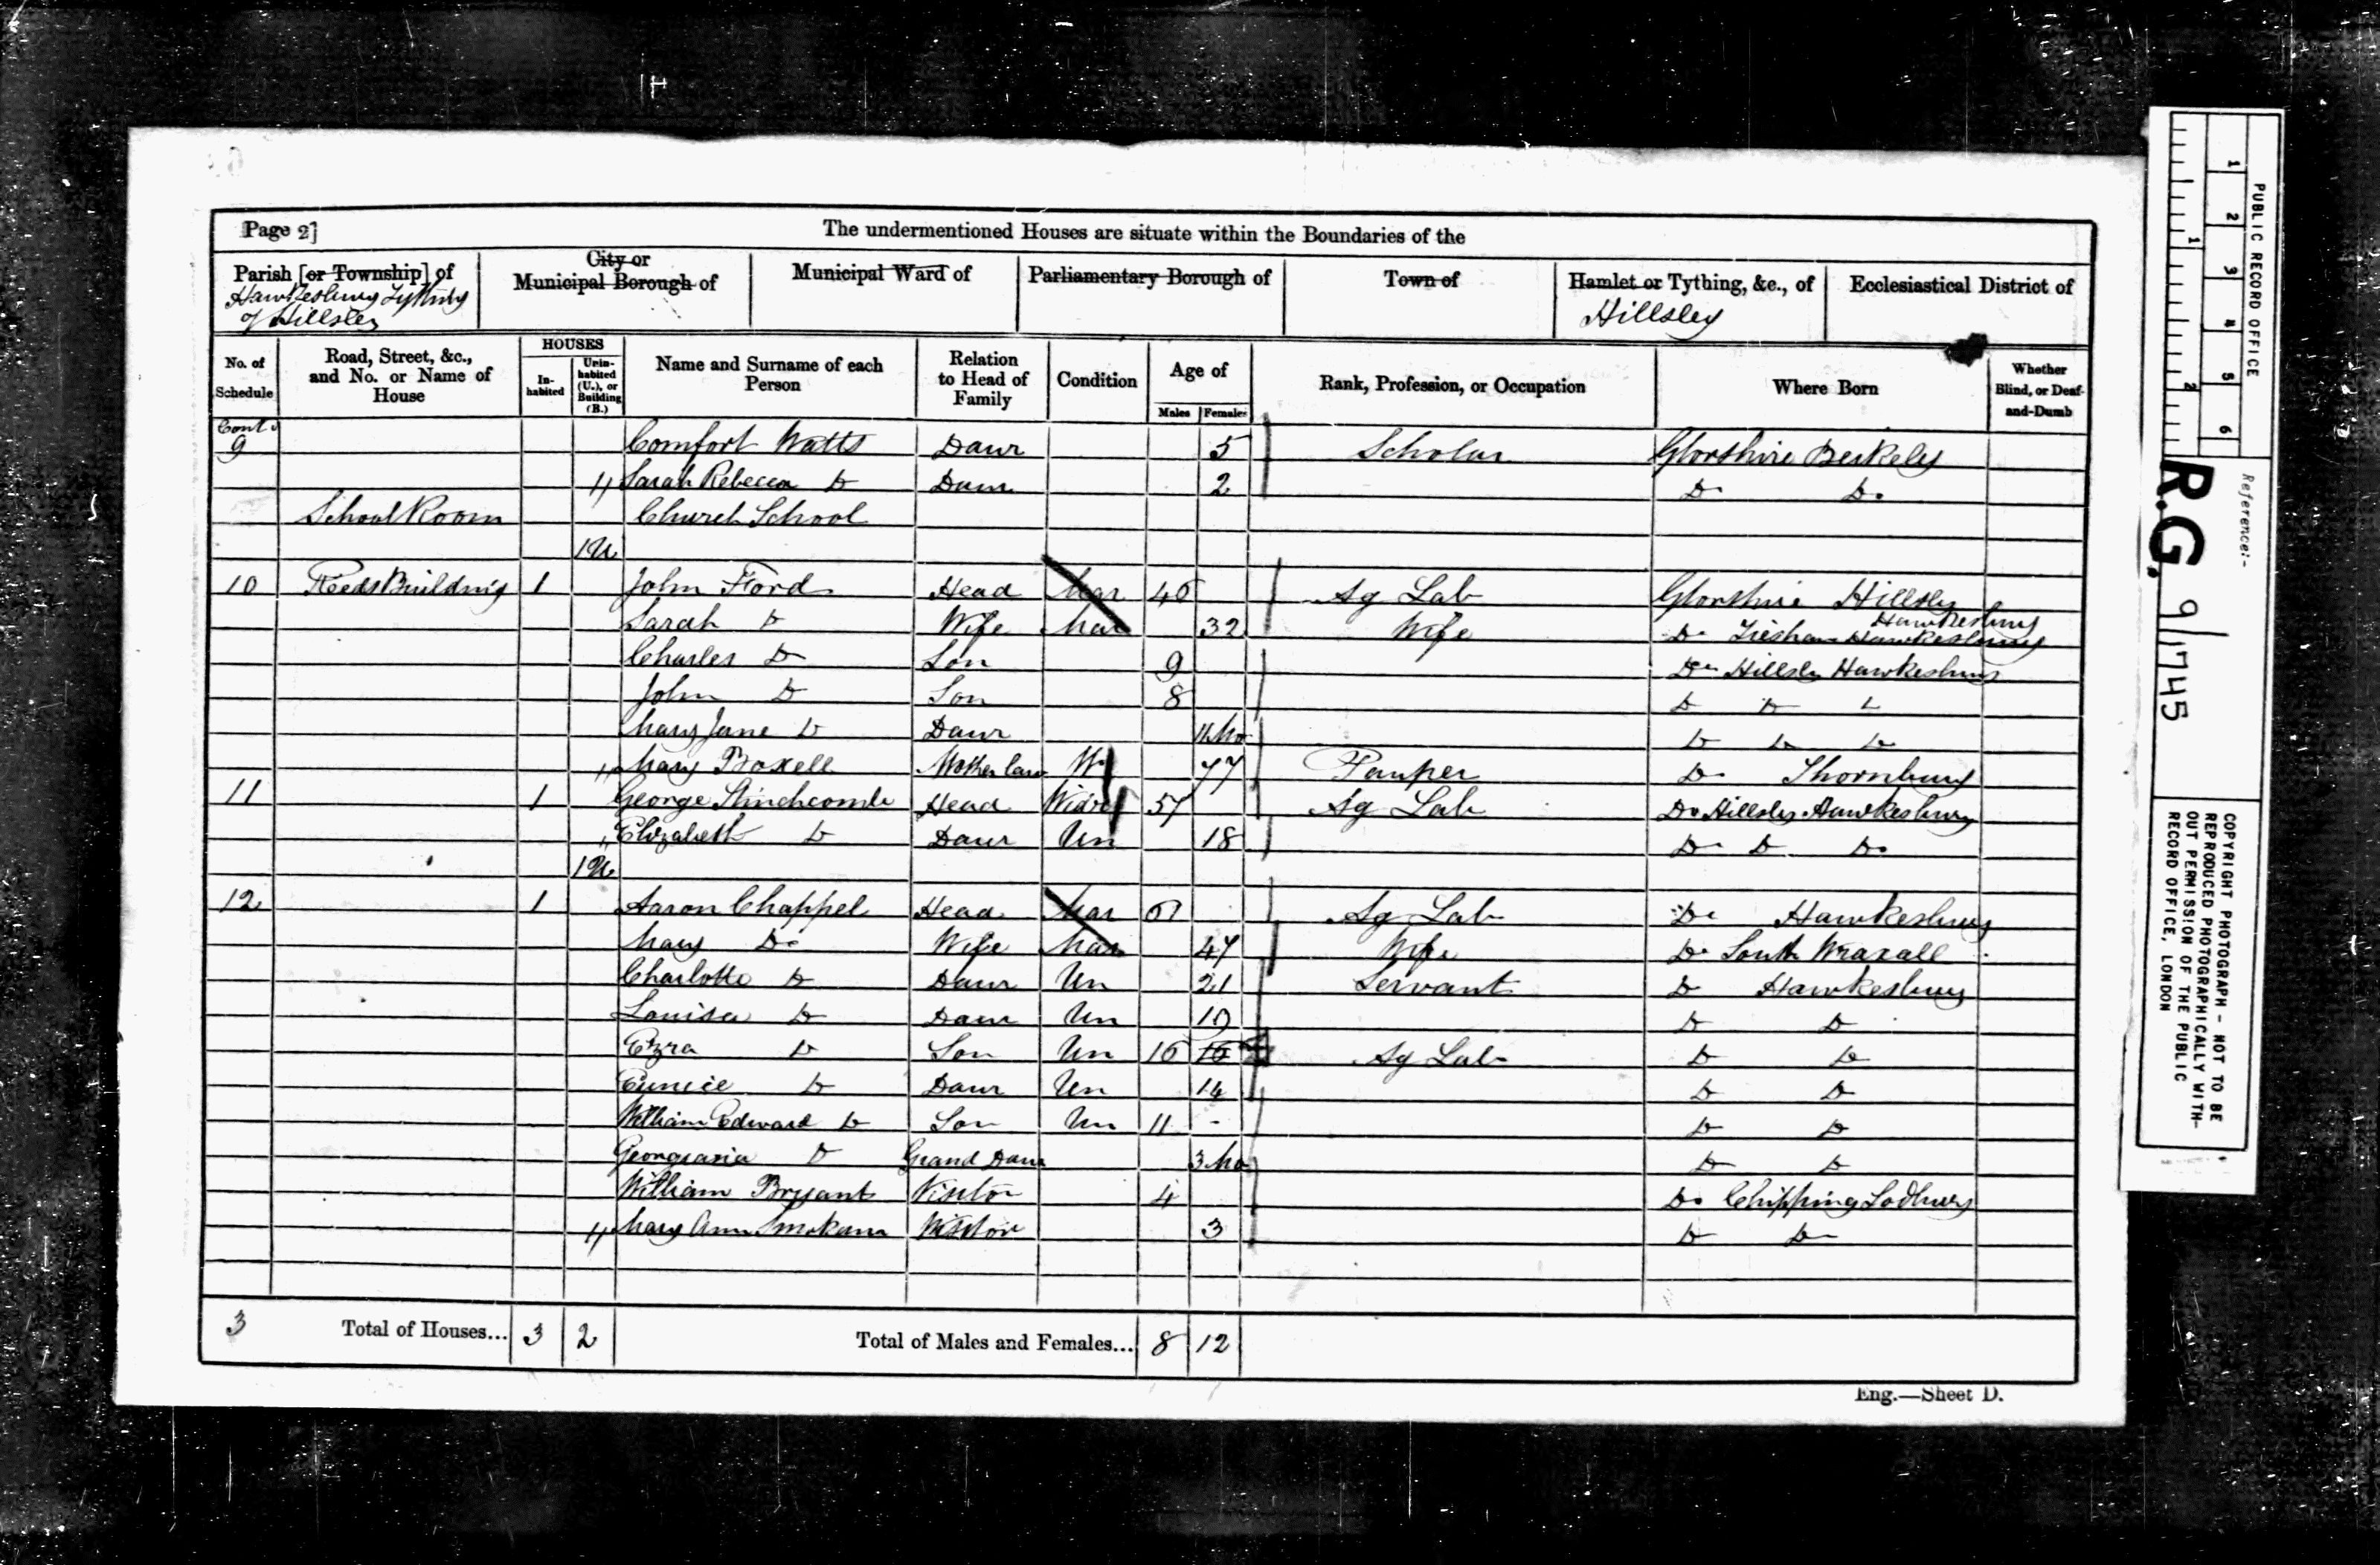 Page 2] The undermentioned Houses are situate within the Boundaries of the
Parish [or Township] of
Hawkesbury Tything
of Hillsley
City or
Municipal Borough of
Municipal Ward of
Parliamentary Borough of
Town of
Hamlet or Tything, &c., of
Hillsley
Ecclesiastical District of
No. of
Schedule
Road, Street, &c.,
and No. or Name of
House
HOUSES
In-
habited
Unin-
habited
(U.), or
Building
(B.)
Name and Surname of each
Person
Relation
to Head of
Family
Condition
Age of
Males
Females
Rank, Profession, or Occupation
Where Born
Whether
Blind, or Deaf-
and-Dumb
Contd
9 Comfort Watts Daur 5 Scholar Glorshire Berkely
// Sarah Rebecca Do Daur 2 Do Do
School Room Church School
1U
10 Reeds Buildings 1 John Ford Head Mar 46 Ag Lab Glorshire Hillsley
Hawkesbury
Sarah Do Wife Mar 32 Wife Do Hawkesbury
Charles Do Son 9 Do Hillsley Hawkesbury
John Do Son 8 Do Do Do
Mary Jane Do Daur 11 Mo Do Do Do
// Mary Boxell Mother law W 77 Pauper Do Thornbury
11 1 George Stinchcomb Head Widr 57 Ag Lab Do Hillsley Hawkesbury
// Elizabeth Do Daur Un 18 Do Do Do
1U
12 1 Aaron Chappel Head Mar Ag Lab Do Hawkesbury
Mary Do Wife Mar 47 Wife Do South Wraxall
Charlotte Do Daur Un 21 Servant Do Hawkesbury
Louisa Do Daur Un 19 Do Do
Ezra Do Son Un 16 16 Ag Lab Do Do
Eunice Do Daur Un 14 Do Do
William Edward Do Son Un 11 - Do Do
Do Grand Daur 3 Mo Do Do
William Bryant Visitor 4 Do Chipping Sodbury
// Mary Ann Visitor 3 Do Do
3 Total of Houses... 3 2 Total of Males and Females... 8 12
Eng.—Sheet D.
PUBLIC RECORD OFFICE
1 2 3 4 5 6
1 2
Reference:-
R.G. 9/1745
COPYRIGHT PHOTOGRAPH – NOT TO BE
REPRODUCED PHOTOGRAPHICALLY WITH-
OUT PERMISSION OF THE PUBLIC
RECORD OFFICE, LONDON